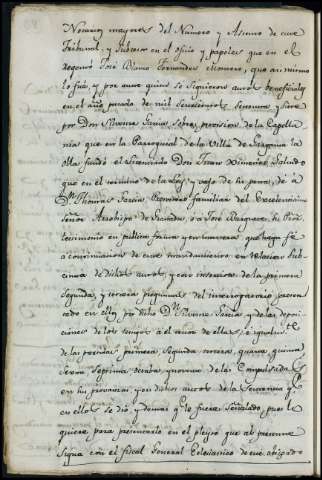 Notarios mayores del Numero y Asiento de este
Tribunal, y subcesor en el oficio y papeles que en el
regento José Blanco Fernandez, que asi mismo
lo fué, y por ante quien se siguieron autos beneficiales
en el año pasado de mil setecientos sesenta y siete
por Don Thomas Garcia sobre provision de la Capella
nia que en la Parroquial de la Villa de
ella fundó el Licenciado Don Juan Ximenez Salcedo
que en el termino de la Ley, y vajo de su pena, dé á
Dn. Thomas Garcia familiar del Excelentisimo
Señor Arzobispo de Granada, ó á José su Pro
testimonio en publica forma y en manera que haga fé
á continuacion de este mandamiento en relacion sub
cinta de dichos autos, y con insercion de la primera
segunda, y tercera preguntas del interrogatorio presen
tado en ellos por dicho Dn. Thomas Garcia, y de las deposi
ciones de los testigos al tenor de ellas; é igualmte.
de las partidas primera, segunda, tercera, quarta, quinta
sexta, septima, octava, y novena de las Compulsadas
en su provanza; y en dichos autos de la Sentencia qe.
en ellos se dió, y demas qe. le fuere señalado, pues lo
quiere para presentarlo en el pleyto que al presente
sigue con el fiscal General Eclesiastico de este Arzpado